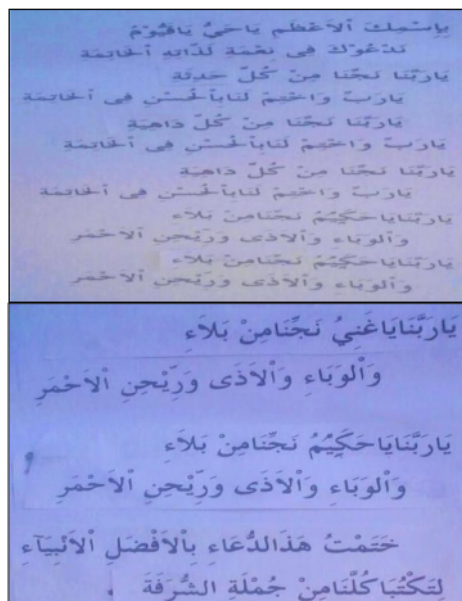 بِإِسْمِكَ ٱلْاَعْظَمِ يَاحَيُّ يَاقَيُّوْمُ
نَدْعُوْكَ فِى نِعْمَةِ لَذَّاتِهِ ٱلْخَاتِمَةِ
يَارَبَّنَا نَجِّنَا مِنْ كُلِّ حَدِثَةِ
يَارَبِّ وَاخْتِمْ لَنَابِٱلْحُسْنِ فِى ٱلْخَاتِمَةِ
يَارَبَّنَا نَجِّنَا مِنْ كُلِّ دَاهِيَةِ
يَارَبِّ وَاخْتِمْ لَنَابِٱلْحُسْنِ فِى ٱلْخَاتِمَةِ
يَارَبَّنَا نَجِّنَا مِنْ كُلِّ دَاهِيَةِ
يَارَبِّ وَاخْتِمْ لَنَابِٱلْحُسْنِ فِى ٱلْخَاتِمَةِ
يَارَبَّنَايَاحَكِيْمُ نَجِّنَامِنْ بَلَاءِ
وَٱلْوَبَاءِ وَٱلْاَذَى وَرِيْحِنِ ٱلْاَحْمَرِ
يَارَبَّنَايَاحَكِيْمُ نَجِّنَامِنْ بَلَاءِ
وَٱلْوَبَاءِ وَٱلْاَذَى وَرِيْحِنِ ٱلْاَحْمَرِ
يَارَبَّنَايَاغَنِيُ نَجِّنَامِنْ بَلَاءِ
وَٱلْوَبَاءِ وَٱلْاَذَى وَرِّيْحِنِ ٱلْاَحْمَرِ
يَارَبَّنَايَاحَكِيْمُ نَجِّنَامِنْ بَلَاءِ
وَٱلْوَبَاءِ وَٱلْاَذَى وَرِّيْحِنِ ٱلْاَحْمَرِ
خَتَمْتُ هَذَالدُّعَاءِ بِٱلْاَفْضَلِ ٱلْاَنْبِيَآءِ
لِتَكْتُبَاكُلَّنَامِنْ جُمْلَةِ الشُّرَفَةَ